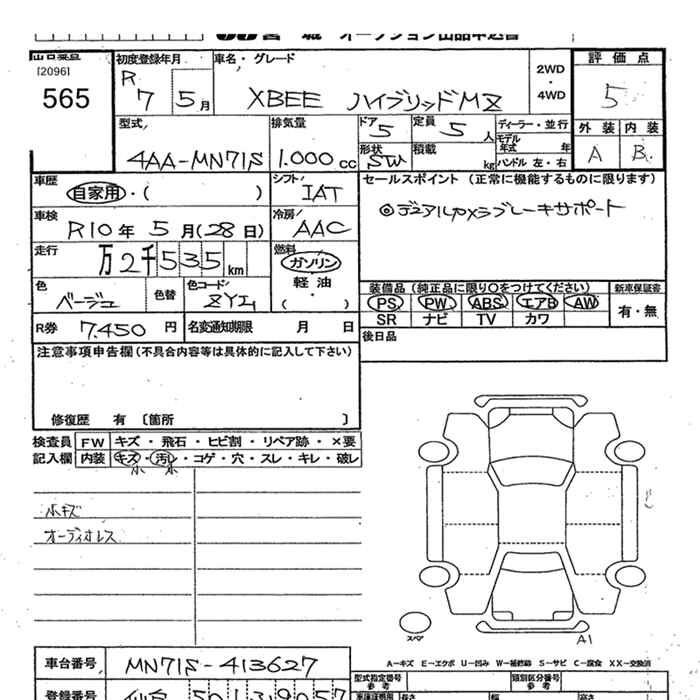 宮 城 オークション出品申込書
出品番号
[2096]
565
初度登録年月
R
7 5 月
車名・グレード
XBEE ハイブリッドMZ
2WD
・
4WD
評 価 点
5
外 装 内 装
A B
型式
4AA-MN71S
排気量
1.000 cc
ドア 5
形状 SW
定員 5 人
積載 kg
ディーラー・並行
モデル年式 年
ハンドル 左・右
車歴
自家用・( )
シフト
IAT
セールスポイント (正常に機能するものに限ります)
◎デュアルカメラブレーキサポート
車検
R10 年 5 月(28 日)
冷房
AAC
走行
万 2 千 5 3 5 km
燃料
ガソリン
軽 油
・( )
色
ベージュ
色替
色コード
ZY1
装備品 (純正品に限り○をつけてください)
PS PW ABS エアB AW
SR ナビ TV カワ
新車保証書
有・無
R券 7.450 円
名変通知期限 月 日
後日品
注意事項申告欄(不具合内容等は具体的に記入して下さい)
修復歴 有 〔箇所 〕
検査員
記入欄
FW キズ ・ 飛石 ・ ヒビ割 ・ リペア跡 ・ ×要
内装 キズ・汚レ・コゲ・穴・スレ・キレ・破レ
小 小
小キズ
オーディオレス
スペア
A1
A-キズ E-エクボ U-凹み W-補修跡 S-サビ C-腐食 XX-交換済
車台番号 MN71S-413627
型式指定番号
参 考
類別区分番号
参 考
登録番号 仙台 501 3 9057
車庫証明用
参 考
長さ 幅 高さ